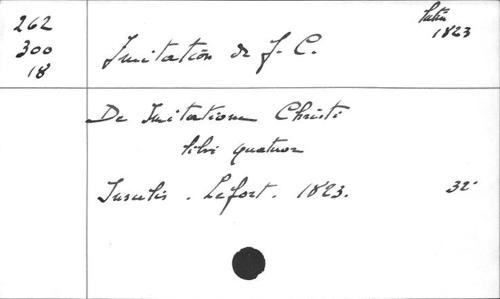 262
300
18
Latin
1823
Imitation de J. C.
De Imitatione Christi
libri quatuor
Insulis. Lefort. 1823.
32°